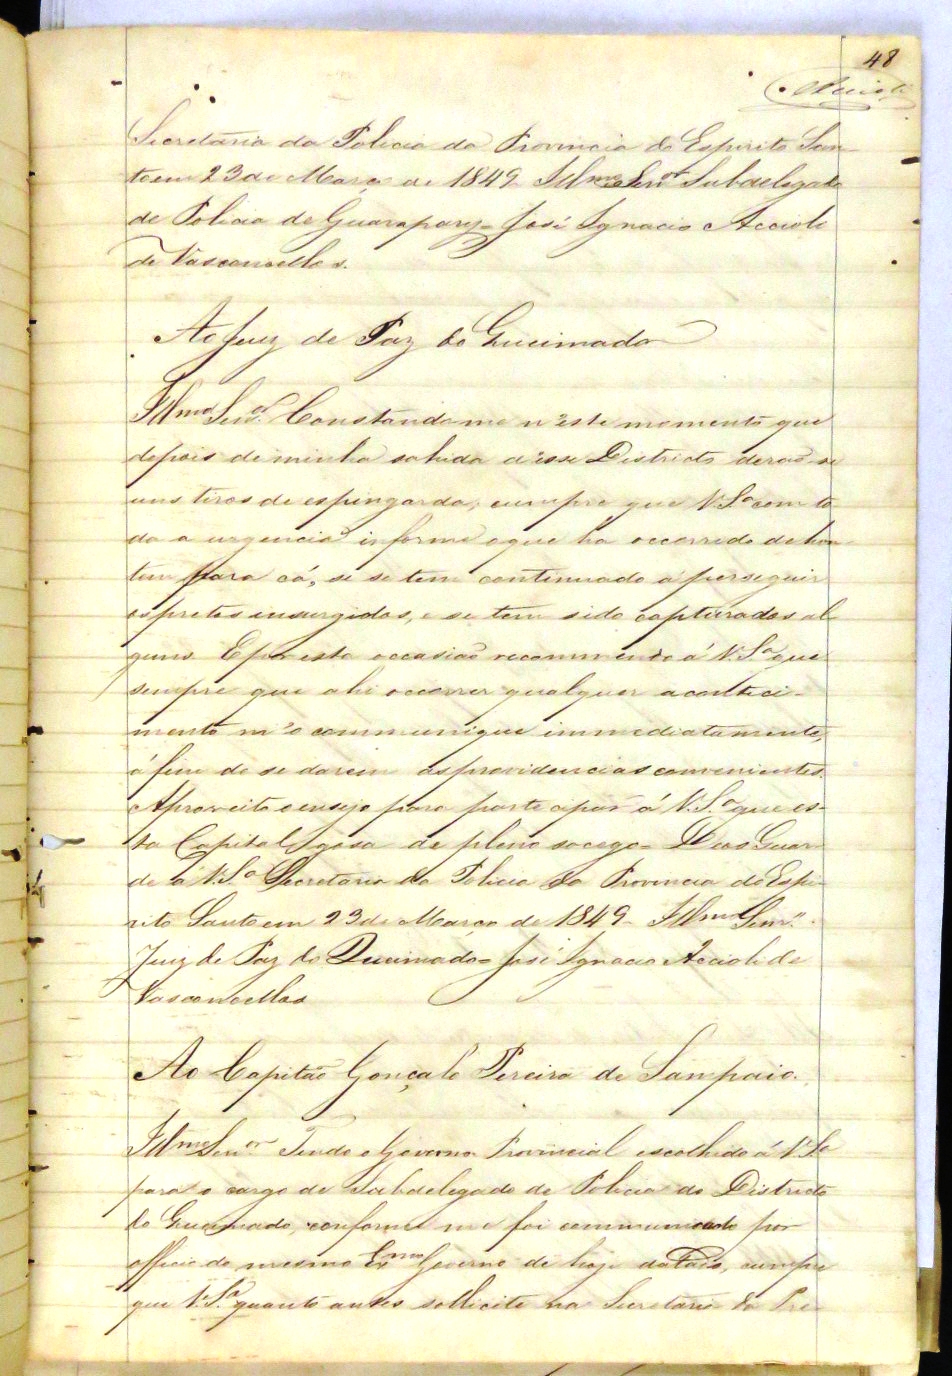 48
Secretaria da Policia da Provincia do Espirito San-
to em 23 de Março de 1849 Illmo Senor Subdelegado
de Policia de Guarapary = José Ignacio Accioli
de Vasconcellos.
Ao Juiz de Paz do Queimado
Illmo Senor. Constando-me n'este momento que
depois de minha sahida d'esse Districto derão-se
uns tiros de espingarda, cumpre que V.Sa com to
da a urgencia informe o que ha occorrido de hon-
tem para cá, se se tem continuado a perseguir
os pretos insurgidos, e se tem sido capturados al
guns E por esta occasião recommendo á V.Sa que
sempre que ahi occorrer qualquer aconteci-
mento m'o communique immediatamente,
á fim de se darem as providencias convenientes.
Aproveito o ensejo para participar á V.Sa que es-
ta Capital gosa de pleno socego = Deos Guar
de á V.Sa Secretaria da Policia da Provincia do Espi-
rito Santo em 23 de Março de 1849 Illmo Senr.
Juiz de Paz do Queimado = José Ignacio Accioli de
Vasconcellos
Ao Capitão Gonçalo Pereira de Sampaio.
Illmo Senor Tendo o Governo Provincial escolhido á V.Sa
para o cargo de Subdelegado de Policia do Districto
do Queimado, conforme me foi communicado por
officio do mesmo Exmo Governo de hoje datado, cumpre
que V.Sa quanto antes sollicite na Secretaria da Pre-